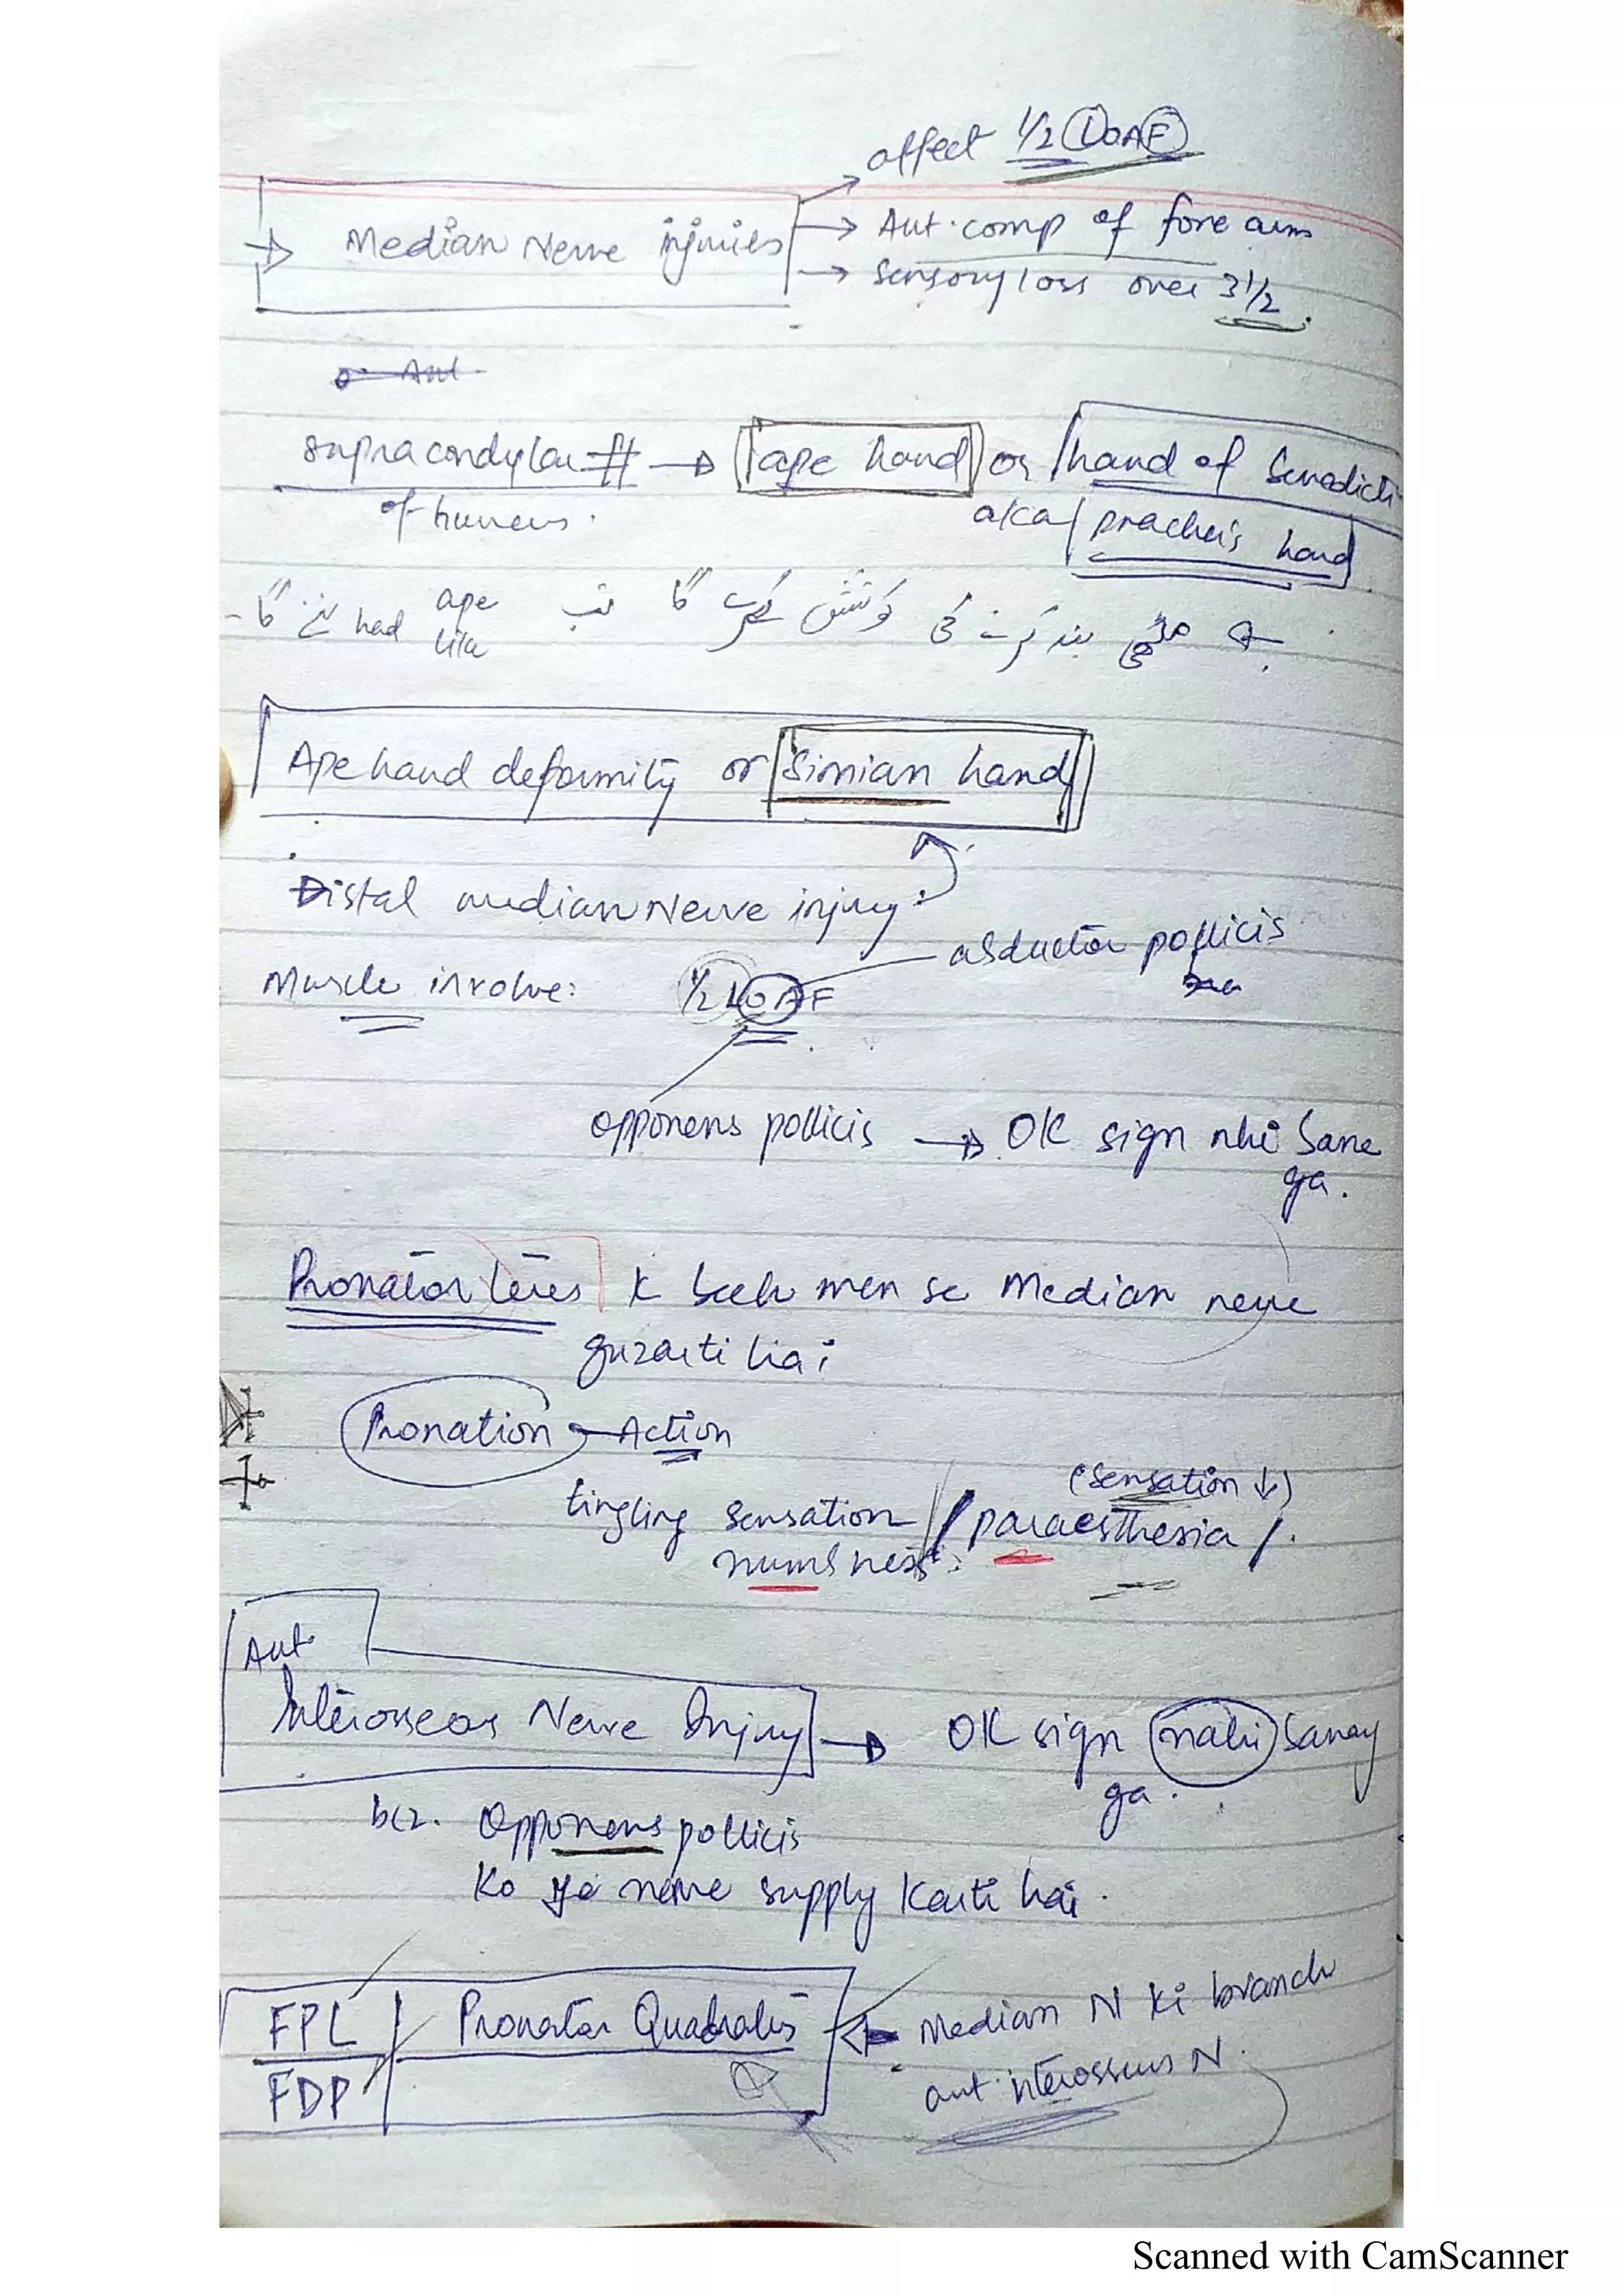 affect 1/2 LOAF
→ Median Nerve injuries
→ Ant. comp of fore arm
→ Sensory loss over 3 1/2.
Ant.
supracondylar # → ape hand or hand of Benedicti
of humerus. aka preacher's hand
← مٹھی بند کرنے کی کوشش کرے گا تب ape like had بنے گا -
Ape hand deformity or Simian hand
Distal median Nerve injury:
abductor pollicis
Muscle involve: 1/2 LOAF
opponens pollicis → OK sign nhi bane
ga.
Pronator teres k beech men se Median nerve
guzarti hai
Pronation Action
(sensation ↓)
tingling sensation / paraesthesia /.
numbness:
Ant.
Interosseos Nerve Injury → OK sign nahi banay
ga.
bcz. Opponens pollicis
Ko ye nerve supply karti hai.
FPL Pronator Quadratus ← Median N ki branch
FDP ant. interosseus N.
Scanned with CamScanner